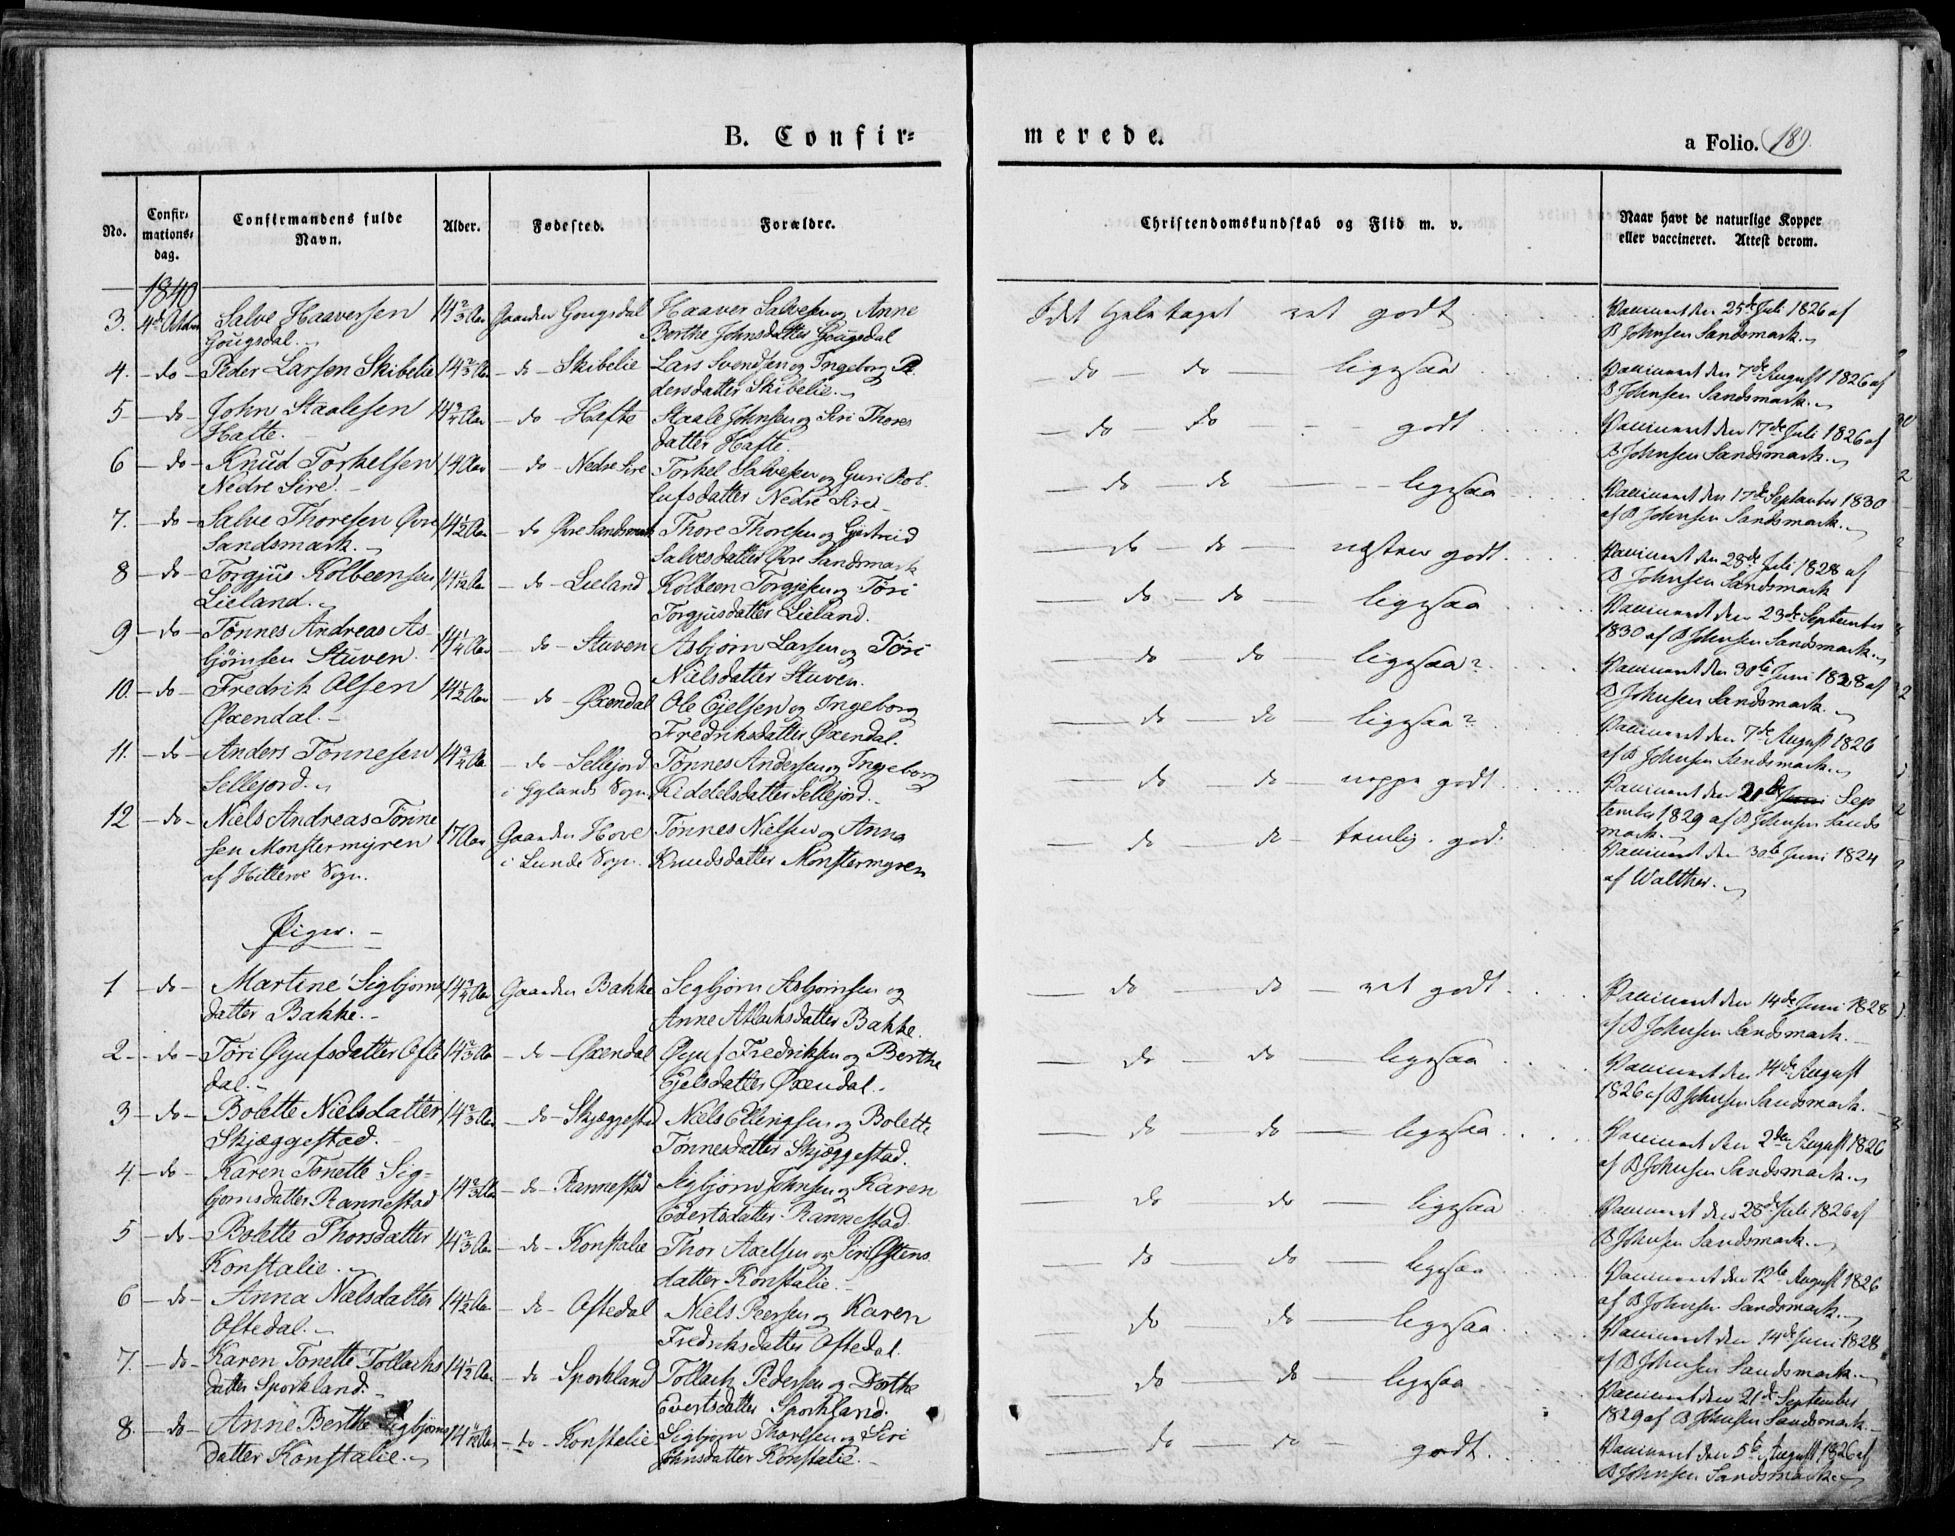 B. Confir= merede.
a Folio. 189.
No. Confir= mations= dag. Confirmandens fulde Navn. Alder. Fødested. Forældre. Christendomskundskab og Flid m. v. Naar havt de naturlige Kopper eller vaccineret. Attest derom.
1840
3. 4de October Salve Haaversen 14 2/3 Aar Gaarden Gougsdal Haaver Salvesen og Anne I det Hele taget ret godt Vaccineret den 25de Juli 1826 af
Gougsdal. Berthe Johnsdatter Gougsdal B Johnsen Sandsmark.
4. - do - Peder Larsen Skibelie 14 2/3 Aar - do - Skibelie Lars Svendsen og Ingeborg Pe - do - do - ligesaa Vaccineret den 7de August 1826 af
dersdatter Skibelie. B Johnsen Sandsmark.
5 - do John Staalesen 14 3/4 Aar - do Hafte Staale Johnsen og Siri Thores - do do - - godt Vaccineret den 17de Juli 1826 af
Hafte. datter Hafte. B Johnsen Sandsmark.
6 - do - Knud Torkelsen 14 Aar - do - Nedre Sire Torkel Salvesen og Guri Rol - do - do - ligesaa Vaccineret den 17de September 1830
Nedre Sire. lufsdatter Nedre Sire af B Johnsen Sandsmark.
7. - do - Salve Thoresen Øvre 14 1/2 Aar - do Øvre Sandsmark Thore Thoresen og Gjertruid - do - do - næsten godt Vaccineret den 28de Juli 1828 af
Sandsmark. Salvesdatter Øvre Sandsmark B Johnsen Sandsmark
8 - do - Torgjus Kolbeensen - do - Lieland Kolbeen Torgjesen og Tøri - do - do - ligesaa Vaccineret den 23de September
Lieland. Torgjusdatter Lieland. 1830 af B Johnsen Sandsmark.
9 - do - Tønnes Andreas As 14 1/4 Aar - do - Stuven Asbjørn Larsen og Tøri - do - do - ligesaa? Vaccineret den 30te Juni 1828 af
bjørnsen Stuven. Nielsdatter Stuven. B Johnsen Sandsmark.
10. - do - Fredrik Olsen 14 1/2 Aar - do - Øxendal Ole Ejelsen og Ingeborg - do - do - ligesaa? Vaccineret den 7de August 1826
Øxendal. - Fredriksdatter Øxendal. af B Johnsen Sandsmark.
11. - do - Anders Tønnesen 14 3/4 Aar - do - Sellejord Tønnes Andersen og Ingeborg - do - do - neppe godt Vaccineret den 21de Juni Sep
Sellejord. i Gylands Sogn Kiddelsdatter Sellejord. tember 1829 af B Johnsen Sands
mark.
12 - do - Niels Andreas Tønne 17 Aar Gaarden Hove Tønnes Nielsen og Anna - do - do - temlig god. Vaccineret den 30te Juni 1824
sen Monstermyren i Lunde Sogn. Knudsdatter Monstermyren af Walther.
af Hitterøe Sogn.
Piger. -
1 - do - Martine Sigbjørns 14 3/4 Aar Gaarden Bakke Segbjørn Asbjørnsen og - do - do - ret godt Vaccineret den 14de Juni 1828
datter Bakke. - Anne Atlaksdatter Bakke. af B Johnsen Sandsmark.
2 - do - Tøri Øyufsdatter Ofte 14 2/3 Aar - do - Øxendal Øyuf Fredriksen og Berthe - do - do - ligesaa Vaccineret den 14de August
dal. - Ejelsdatter Øxendal. 1826 af B Johnsen Sandsmark.
3 - do - Bolette Nielsdatter 14 2/3 Aar - do - Skjæggestad Niels Ellingsen og Bolette - do - do - ligesaa Vaccineret den 2den August 1826
Skjæggestad. Tønnesdatter Skjæggestad. af B Johnsen Sandsmark.
4. - do - Karen Tonette Sig= 14 2/3 Aar - do - Rannestad Sigbjørn Johnsen og Karen - do - do - ligesaa Vaccineret den 28de Juli 1826 af
bjørnsdatter Rannestad Evertsdatter Rannestad B Johnsen Sandsmark.
5 - do - Bolette Thorsdatter 14 2/3 Aar - do - Konstalie Thor Axelsen og Siri Østens - do - do - ligesaa Vaccineret den 12te August 1826
Konstalie. datter Konstalie. af B Johnsen Sandsmark.
6 - do - Anna Nielsdatter 14 1/2 Aar - do - Oftedal Niels Peersen og Karen - do - do - ligesaa Vaccineret den 14de Juni 1828
Oftedal. Fredriksdatter Oftedal. af B Johnsen Sandsmark.
7. - do - Karen Tonette Tollachs 14 1/2 Aar - do Sporkland Tollach Pedersen og Dorthe - do - do - ligesaa Vaccineret den 21de September
datter Sporkland. Evertsdatter Sporkland. 1829 af B Johnsen Sandsmark
8. - do - Anne Berthe Sigbjørns - do - Konstelie Sigbjørn Thorsen og Siri - do - do - godt. Vaccineret den 5te August 1826 af
datter Konstalie. Johnsdatter Konstalie. B Johnsen Sandsmark